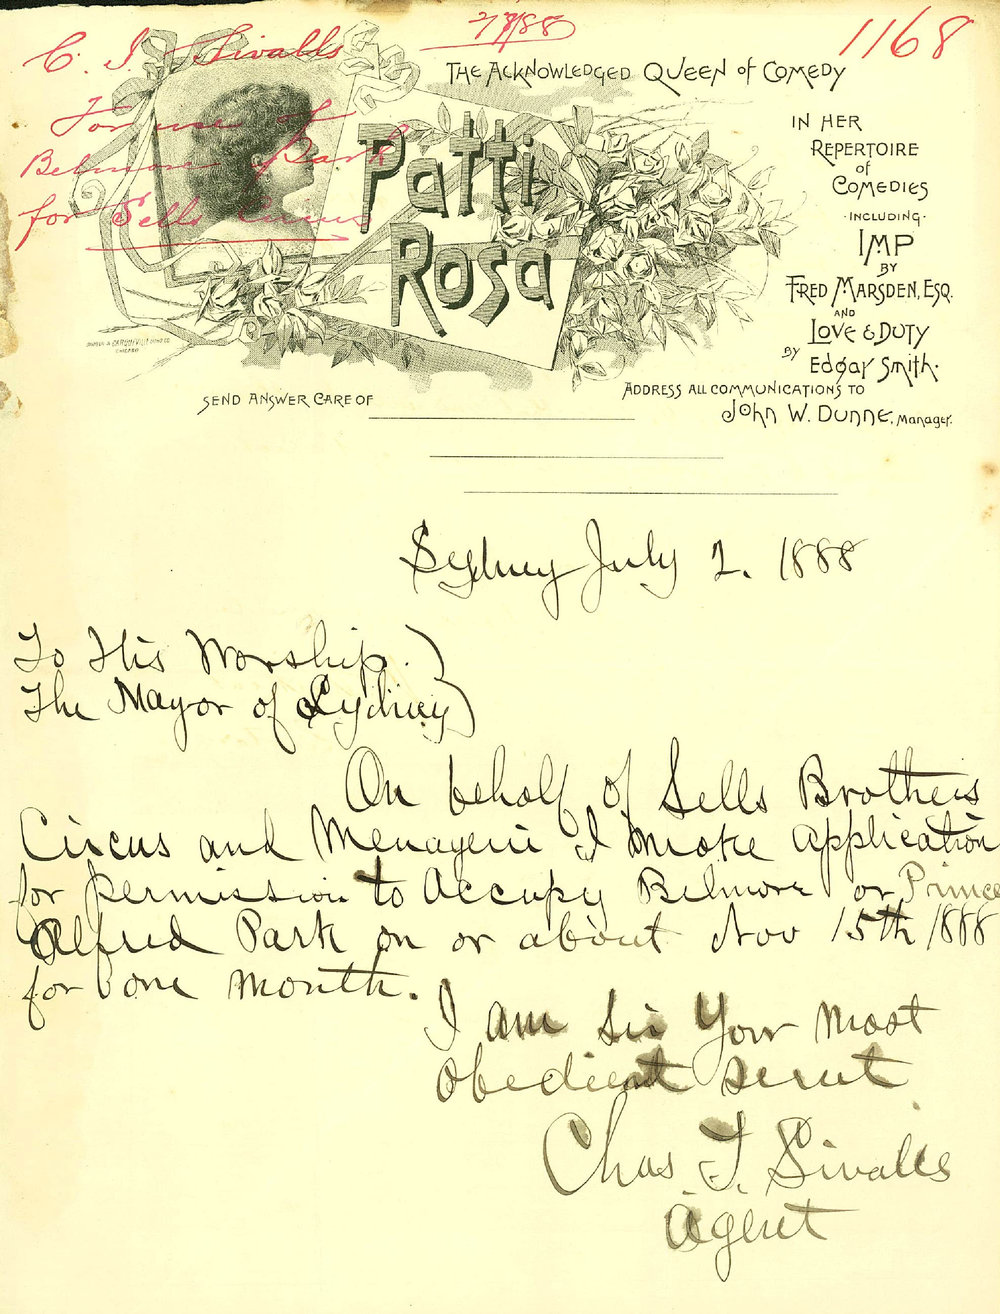 C. I. Sivalls
2/7/88
1168
For use of
Belmore Park
for Sells Circus
The Acknowledged Queen of Comedy
Patti
Rosa
In Her
Repertoire
of
Comedies
Including
Imp
by
Fred Marsden, Esq.
and
Love & Duty
by Edgar Smith.
Chicago
Send Answer Care of
Address all communications to
John W. Dunne, Manager.
Sydney July 2. 1888
To His Worship.
The Mayor of Sydney
On behalf of Sells Brothers
Circus and Menagerie I make application
for permission to accupy Belmore or Prince
Alfred Park on or about Nov 15th 1888
for one month.
I am Sir Your most
obedient servt
Chas T. Sivalls
Agent